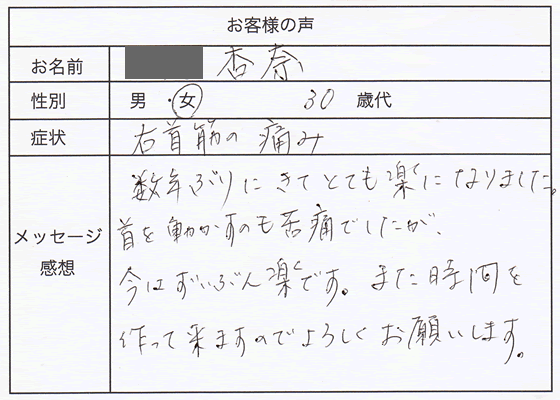 お客様の声
お名前 杏奈
性別 男・女 30 歳代
症状 右首筋の痛み
メッセージ
感想
数年ぶりにきてとても楽になりました。
首を動かすのも苦痛でしたが、
今はずいぶん楽です。また時間を
作って来ますのでよろしくお願いします。